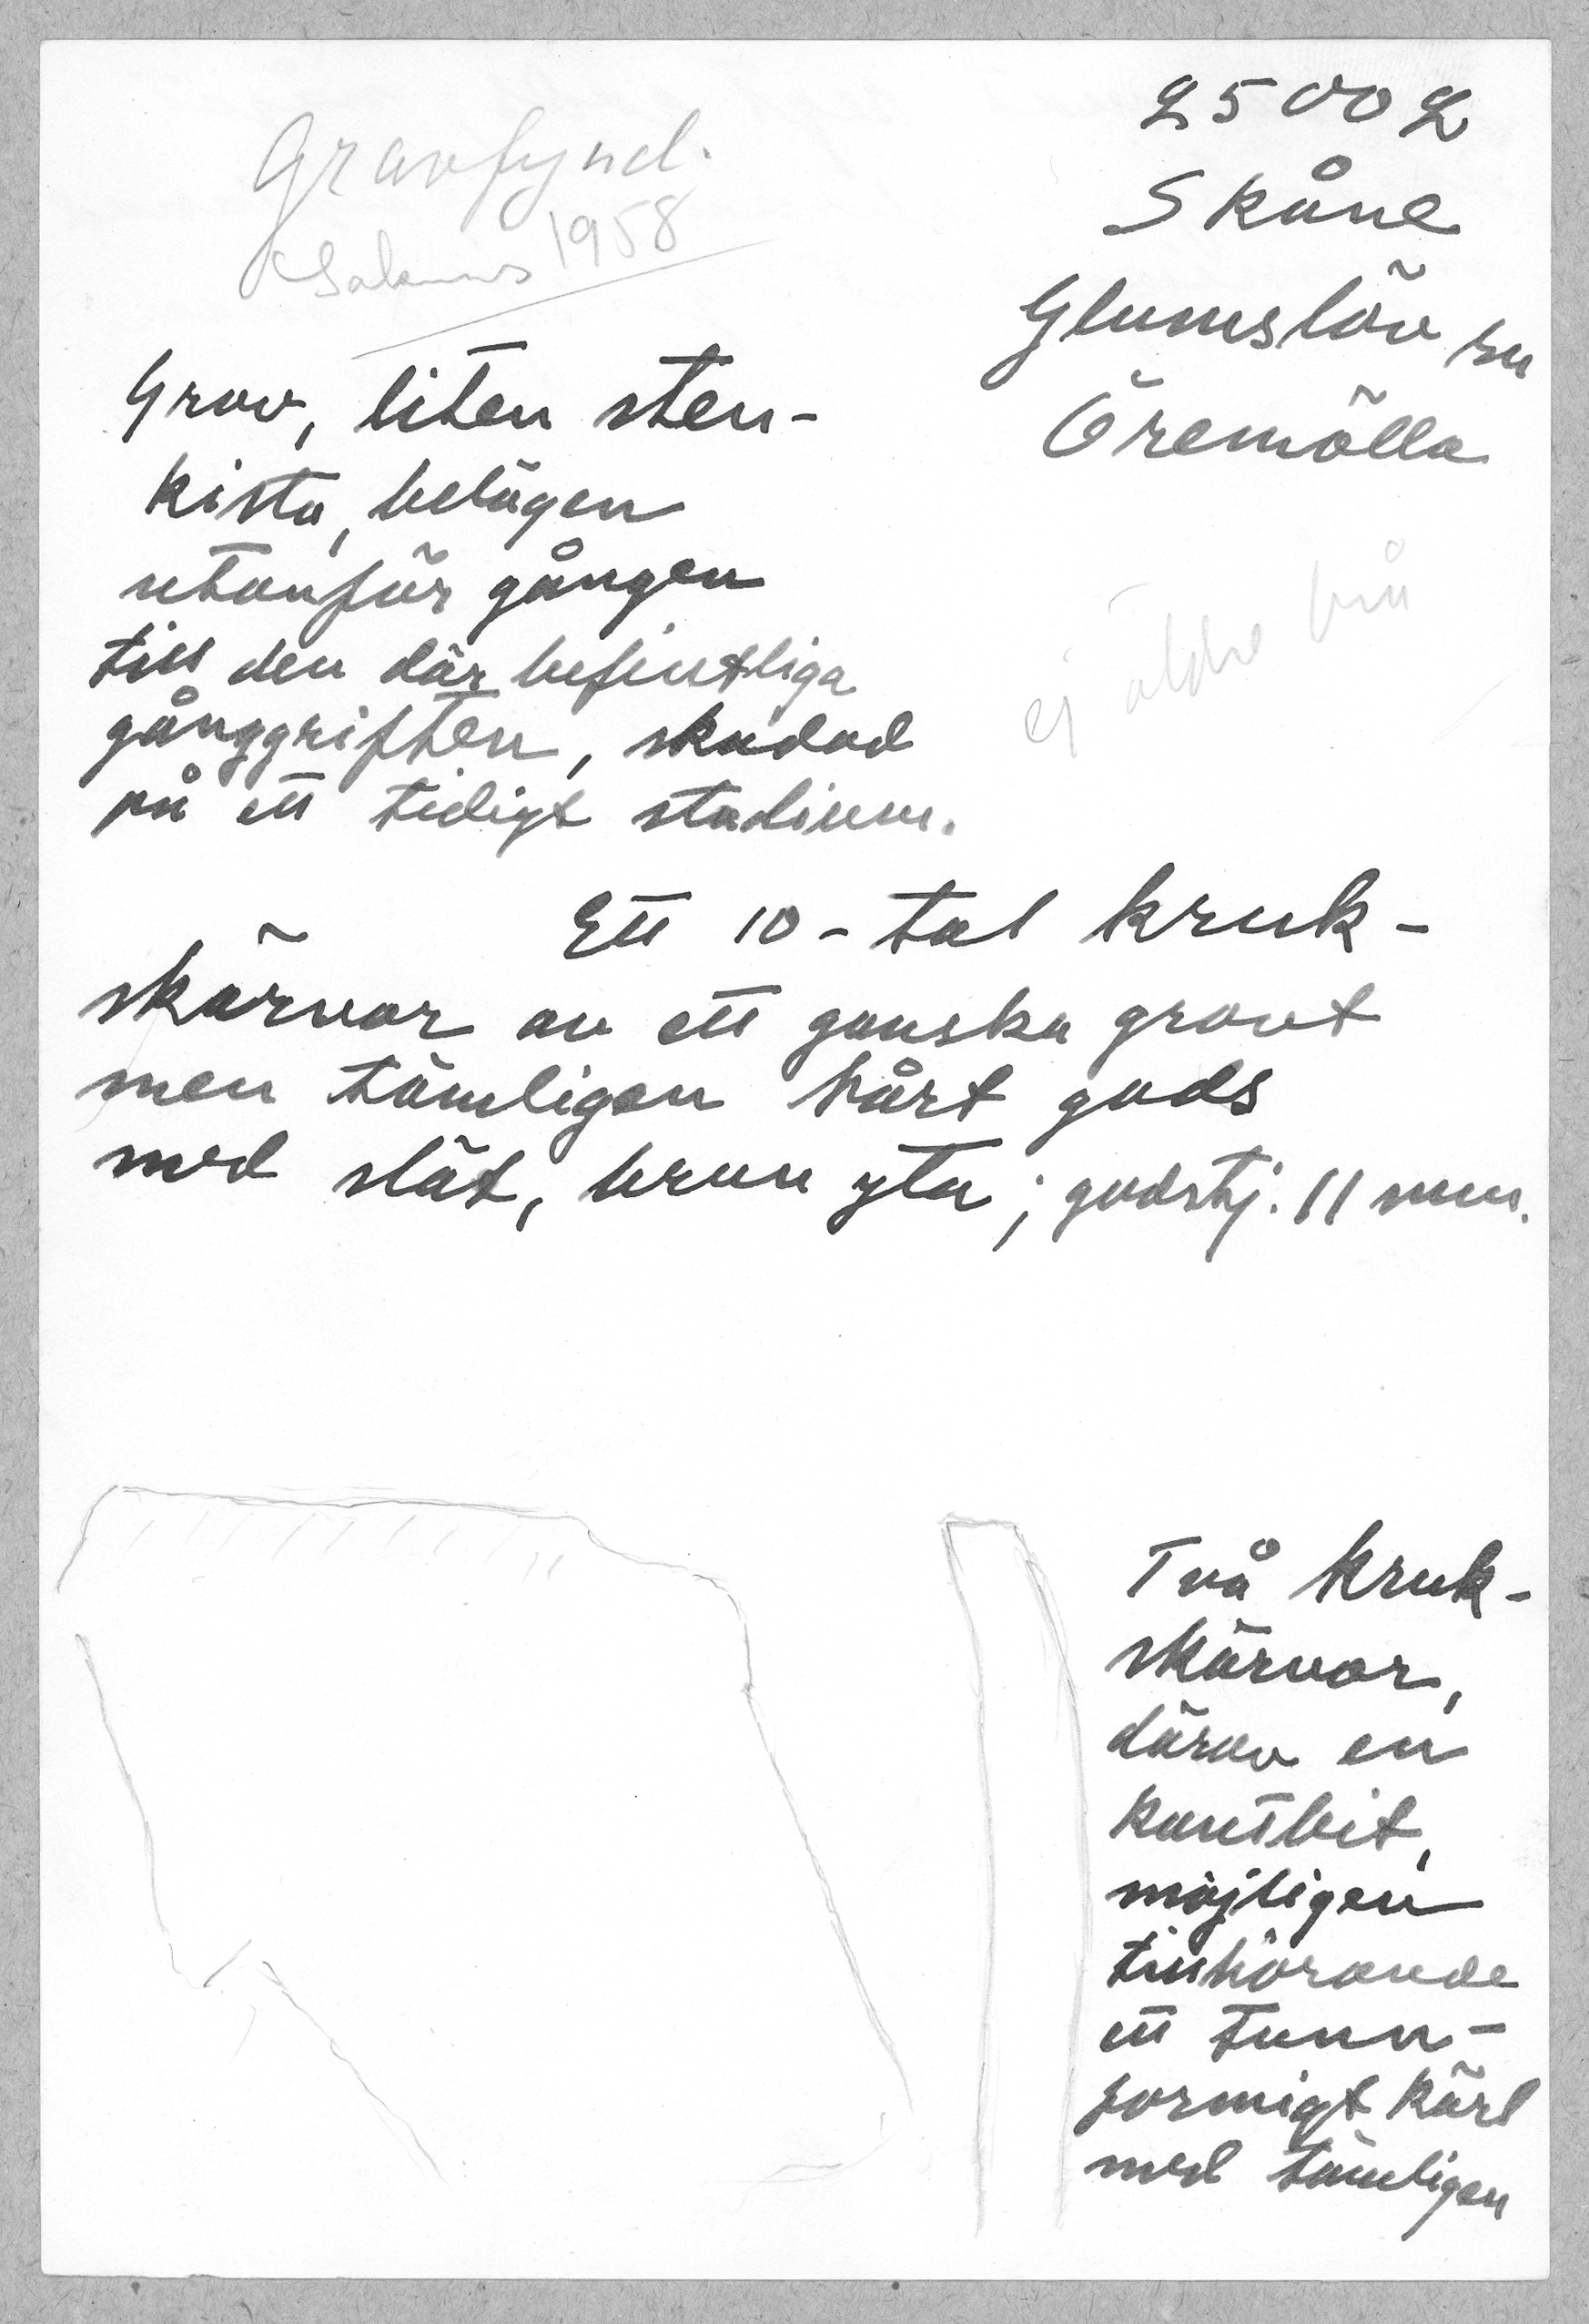 25002
Skåne
Glumslöv sn
Öremölla
Gravfynd.
Saknas 1958
Grav, liten sten-
kista, belägen
utanför gången
till den där befintliga
gånggriften, skadad
på ett tidigt stadium.
ej äldre brå
Ett 10-tal kruk-
skärvor av ett ganska grovt
men tämligen hårt gods
med slät, brun yta; godstj. 11 mm.
Två kruk-
skärvor,
därav en
kantbit,
möjligen
tillhörande
ett tunn-
formigt kärl
med tämligen